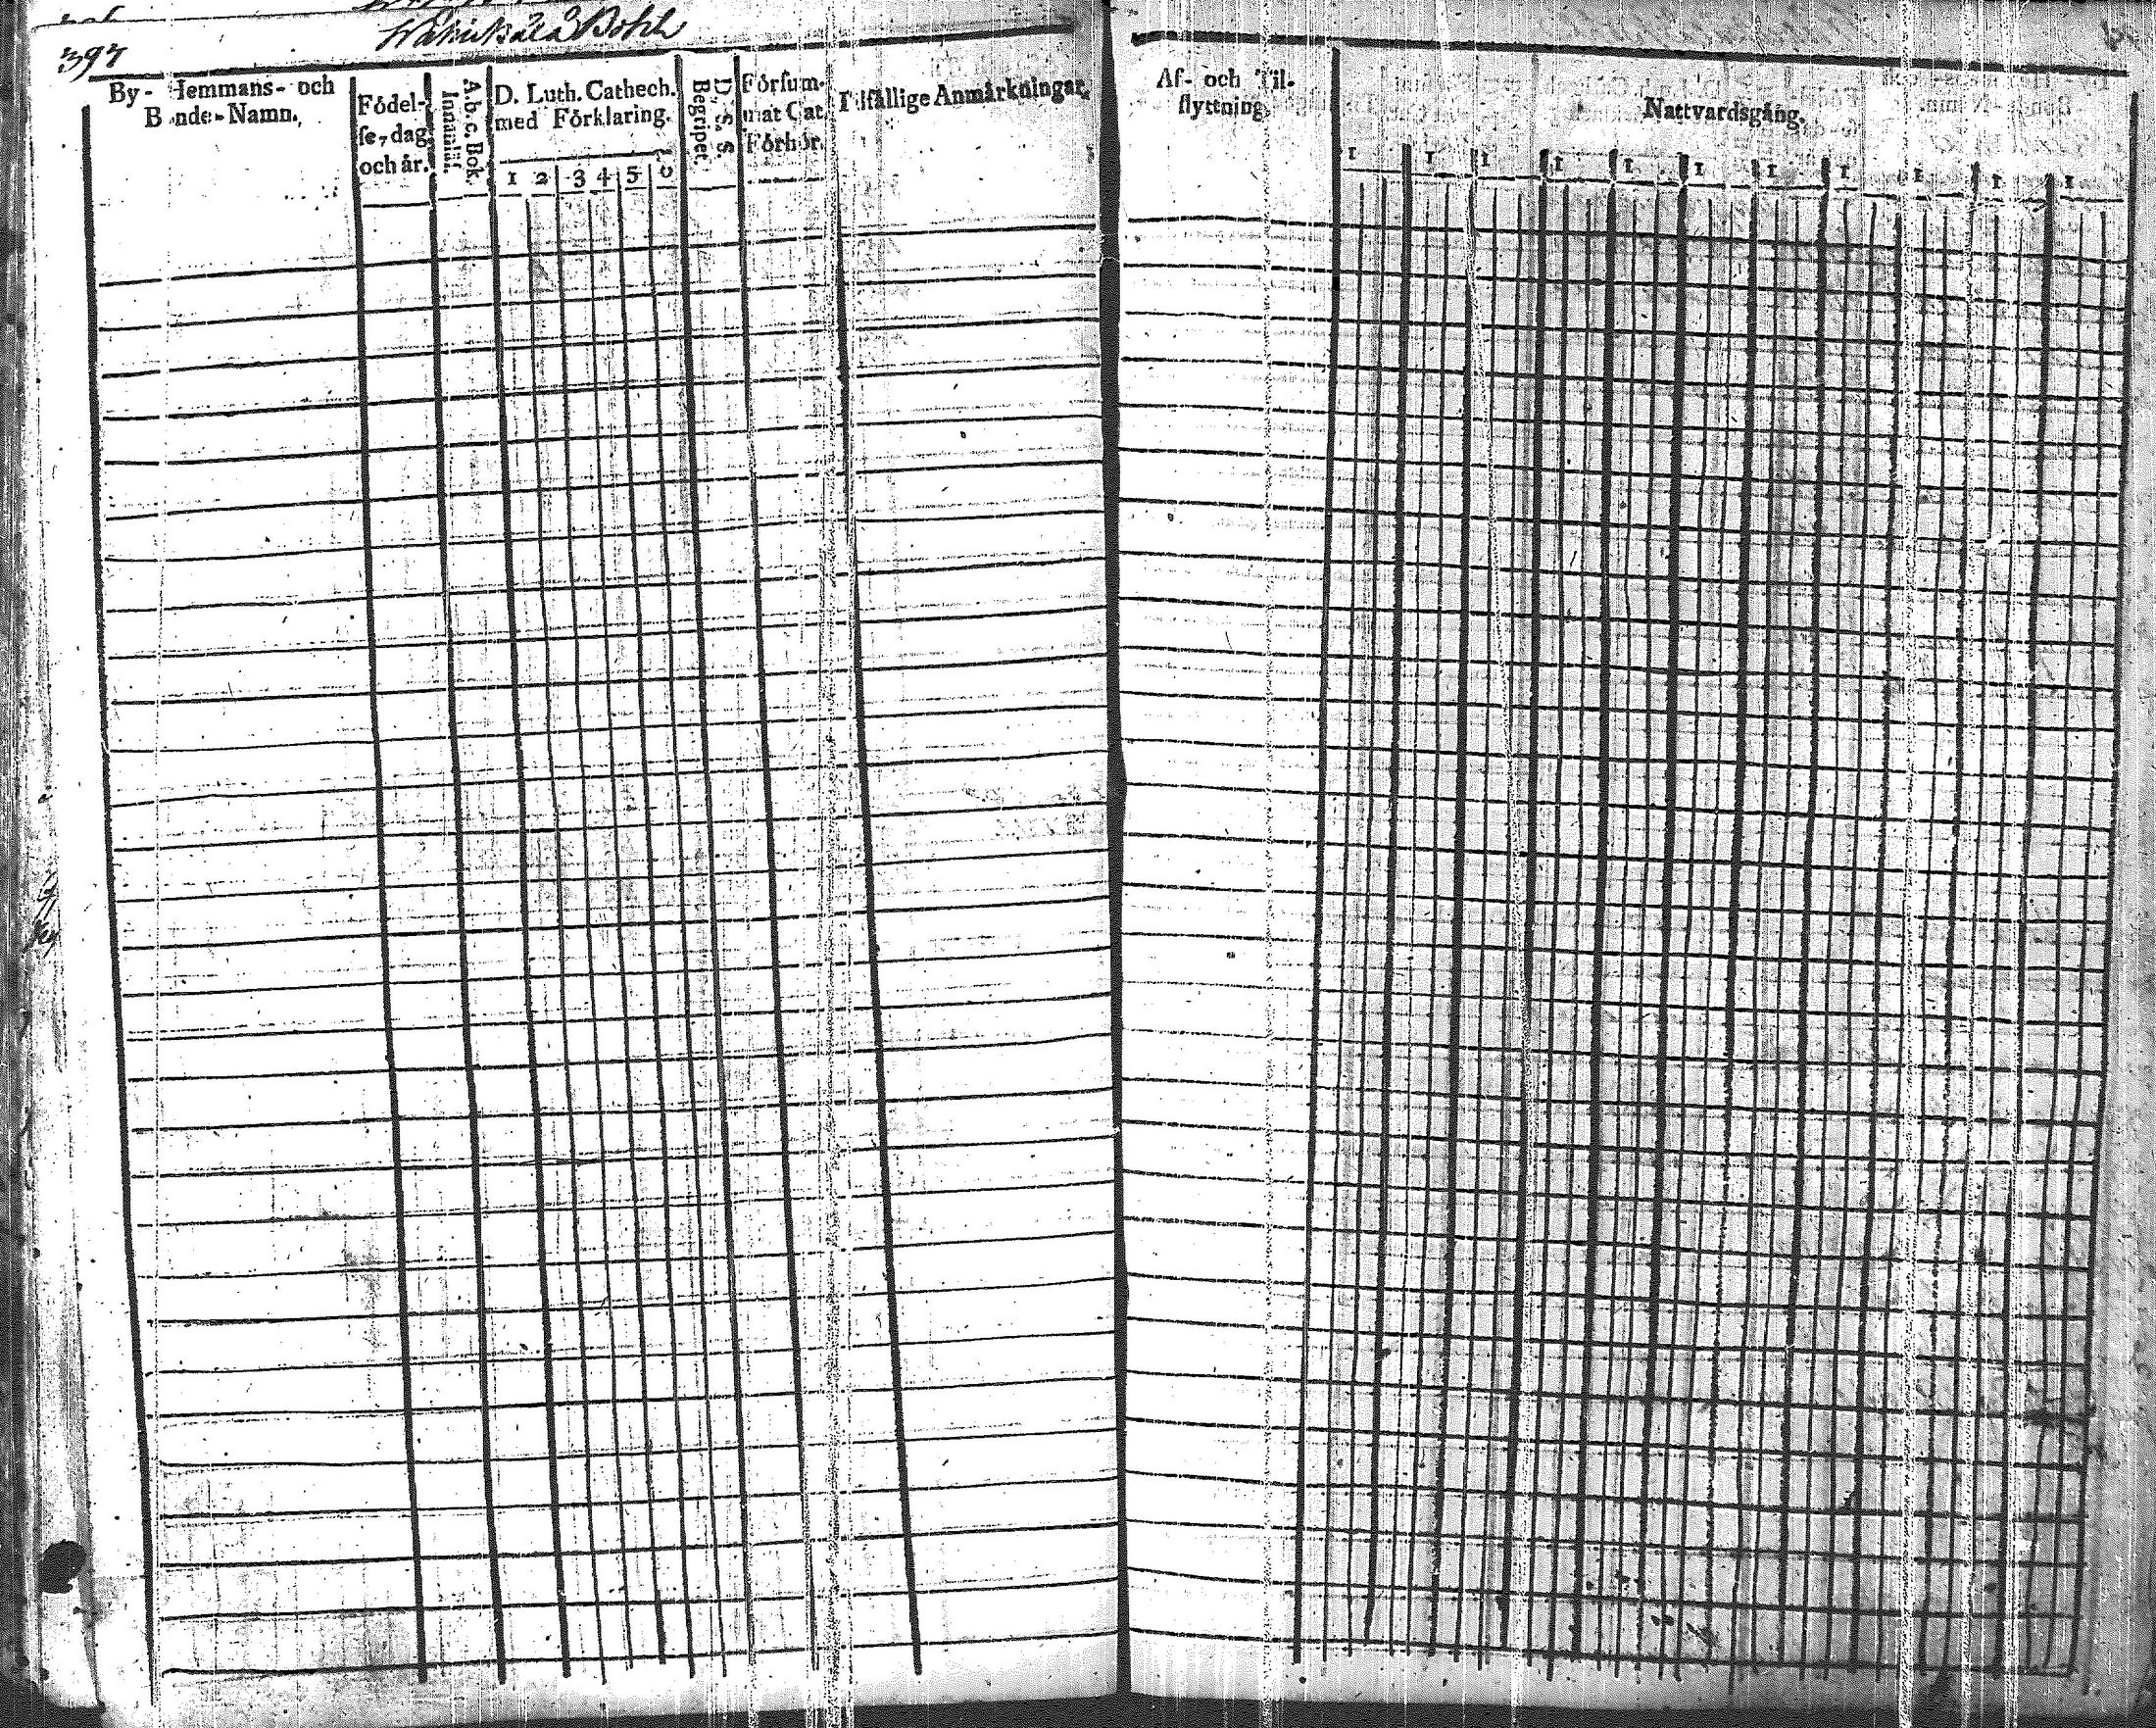 397
By- Hemmans- och
Bonde-Namn.
Födel-
se-dag
och år.
A.b.c. Bok.
Innanläs.
D. Luth. Cathech.
med Förklaring.
1 2 3 4 5 6
D. S. S.
Begripet.
Försum-
mat Cat.
Förhör.
Tilfällige Anmärkningar.
Af- och Til-
flyttning.
Nattvardsgång.
1 1 1 1 1 1 1 1 1 1 1